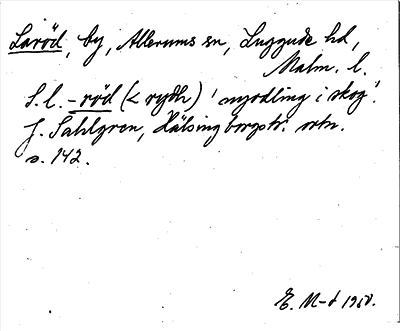 Laröd, by, Allerums sn, Luggude hd,
Malm. l.
S.l. -röd (< rydh) 'nyodling i skog'.
J. Sahlgren, Hälsingborgstr. ortn.
s. 142.
E. M-d 1950.